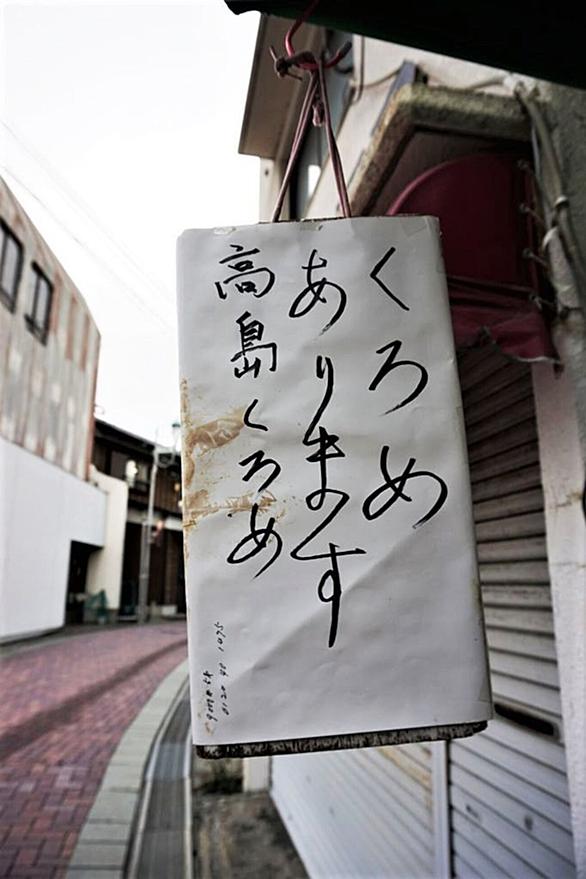 くろめ
あります
高島くろめ